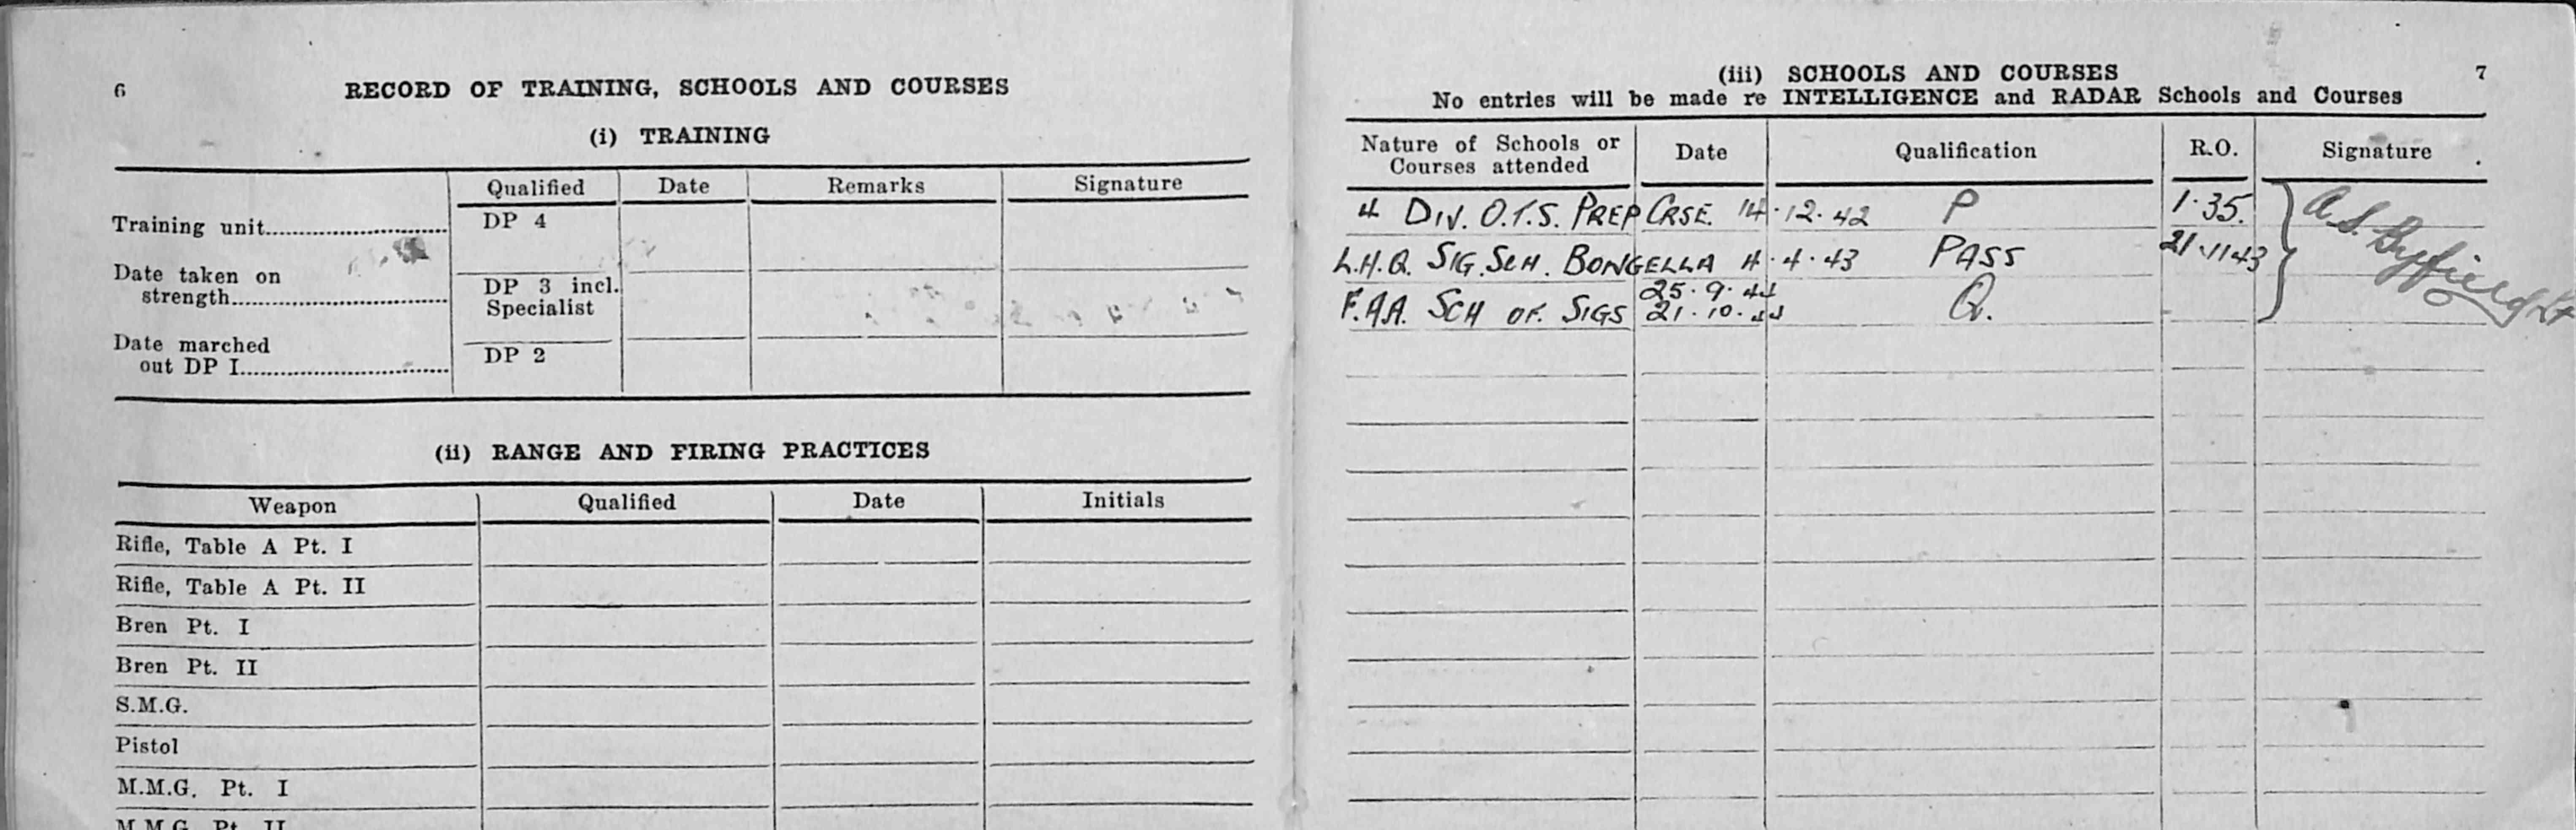 6
RECORD OF TRAINING, SCHOOLS AND COURSES
(i) TRAINING
Qualified Date Remarks Signature
Training unit DP 4
Date taken on
strength
DP 3 incl.
Specialist
Date marched
out DP I
DP 2
(ii) RANGE AND FIRING PRACTICES
Weapon Qualified Date Initials
Rifle, Table A Pt. I
Rifle, Table A Pt. II
Bren Pt. I
Bren Pt. II
S.M.G.
Pistol
M.M.G. Pt. I
M.M.G. Pt. II
(iii) SCHOOLS AND COURSES 7
No entries will be made re INTELLIGENCE and RADAR Schools and Courses
Nature of Schools or
Courses attended
Date Qualification R.O. Signature
4 DIV. O.T.S. PREP CRSE. 14.12.42 P 1.35. A. S. Byfield Lt
L.H.Q. SIG. SCH. BONGELLA 4.4.43 PASS 21.11.43
25.9.44
F.AA. SCH OF. SIGS 21.10.44 Q.